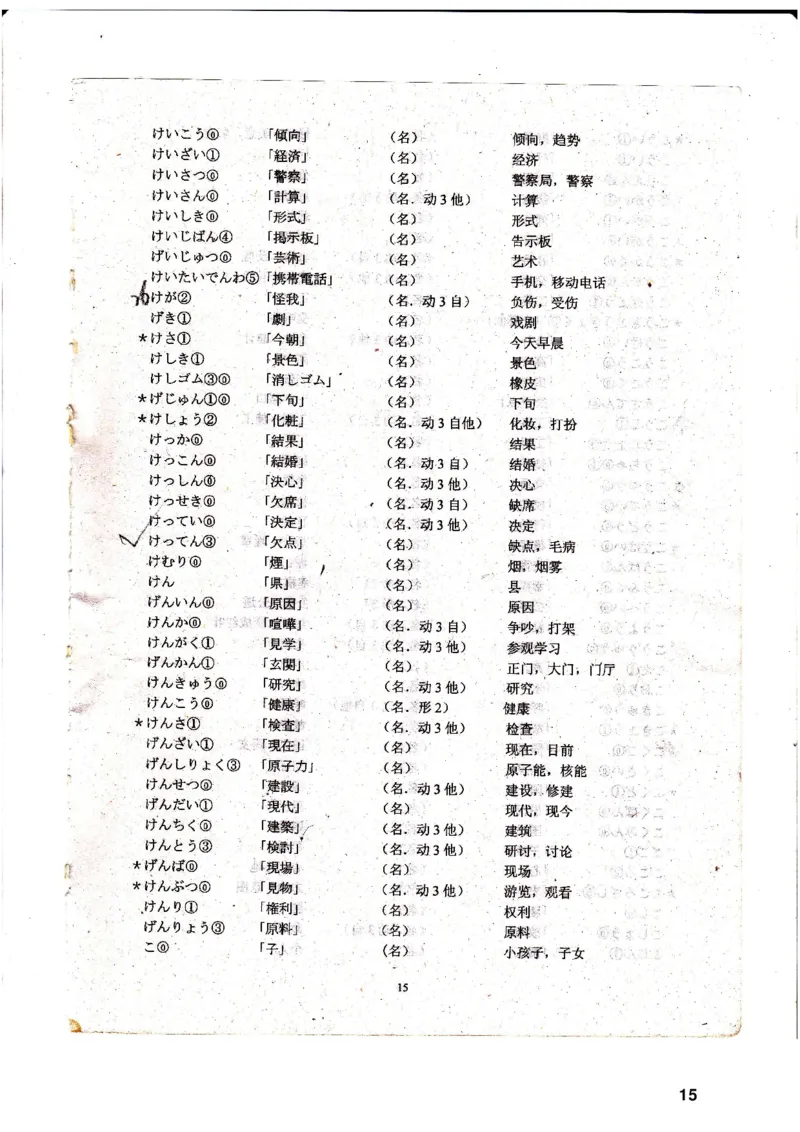 けいこう⓪ 「傾向」 (名) 倾向，趋势
けいざい① 「経済」 (名) 经济
けいさつ⓪ 「警察」 (名) 警察局，警察
けいさん⓪ 「計算」 (名．动3他) 计算
けいしき⓪ 「形式」 (名) 形式
けいじばん④ 「掲示板」 (名) 告示板
げいじゅつ⓪ 「芸術」 (名) 艺术
けいたいでんわ⑤ 「携帯電話」 (名) 手机，移动电话
けが② 「怪我」 (名．动3自) 负伤，受伤
げき① 「劇」 (名) 戏剧
*けさ① 「今朝」 (名) 今天早晨
けしき① 「景色」 (名) 景色
けしゴム③⓪ 「消しゴム」 (名) 橡皮
*げじゅん①⓪ 「下旬」 (名) 下旬
*けしょう② 「化粧」 (名．动3自他) 化妆，打扮
けっか⓪ 「結果」 (名) 结果
けっこん⓪ 「結婚」 (名．动3自) 结婚
けっしん⓪ 「决心」 (名．动3他) 决心
けっせき⓪ 「欠席」 (名．动3自) 缺席
けってい⓪ 「決定」 (名．动3他) 决定
けってん③ 「欠点」 (名) 缺点，毛病
けむり⓪ 「煙」 (名) 烟，烟雾
けん 「県」 (名) 县
げんいん⓪ 「原因」 (名) 原因
けんか⓪ 「喧嘩」 (名．动3自) 争吵，打架
けんがく① 「見学」 (名．动3他) 参观学习
げんかん① 「玄関」 (名) 正门，大门，门厅
けんきゅう⓪ 「研究」 (名．动3他) 研究
けんこう⓪ 「健康」 (名．形2) 健康
*けんさ① 「検査」 (名．动3他) 检查
げんざい① 「現在」 (名) 现在，目前
げんしりょく③ 「原子力」 (名) 原子能，核能
けんせつ⓪ 「建設」 (名．动3他) 建设，修建
げんだい① 「現代」 (名) 现代，现今
けんちく⓪ 「建築」 (名．动3他) 建筑
けんとう③ 「検討」 (名．动3他) 研讨，讨论
*げんば⓪ 「現場」 (名) 现场
*けんぶつ⓪ 「見物」 (名．动3他) 游览，观看
けんり① 「権利」 (名) 权利
げんりょう③ 「原料」 (名) 原料
こ⓪ 「子」 (名) 小孩子，子女
15
15